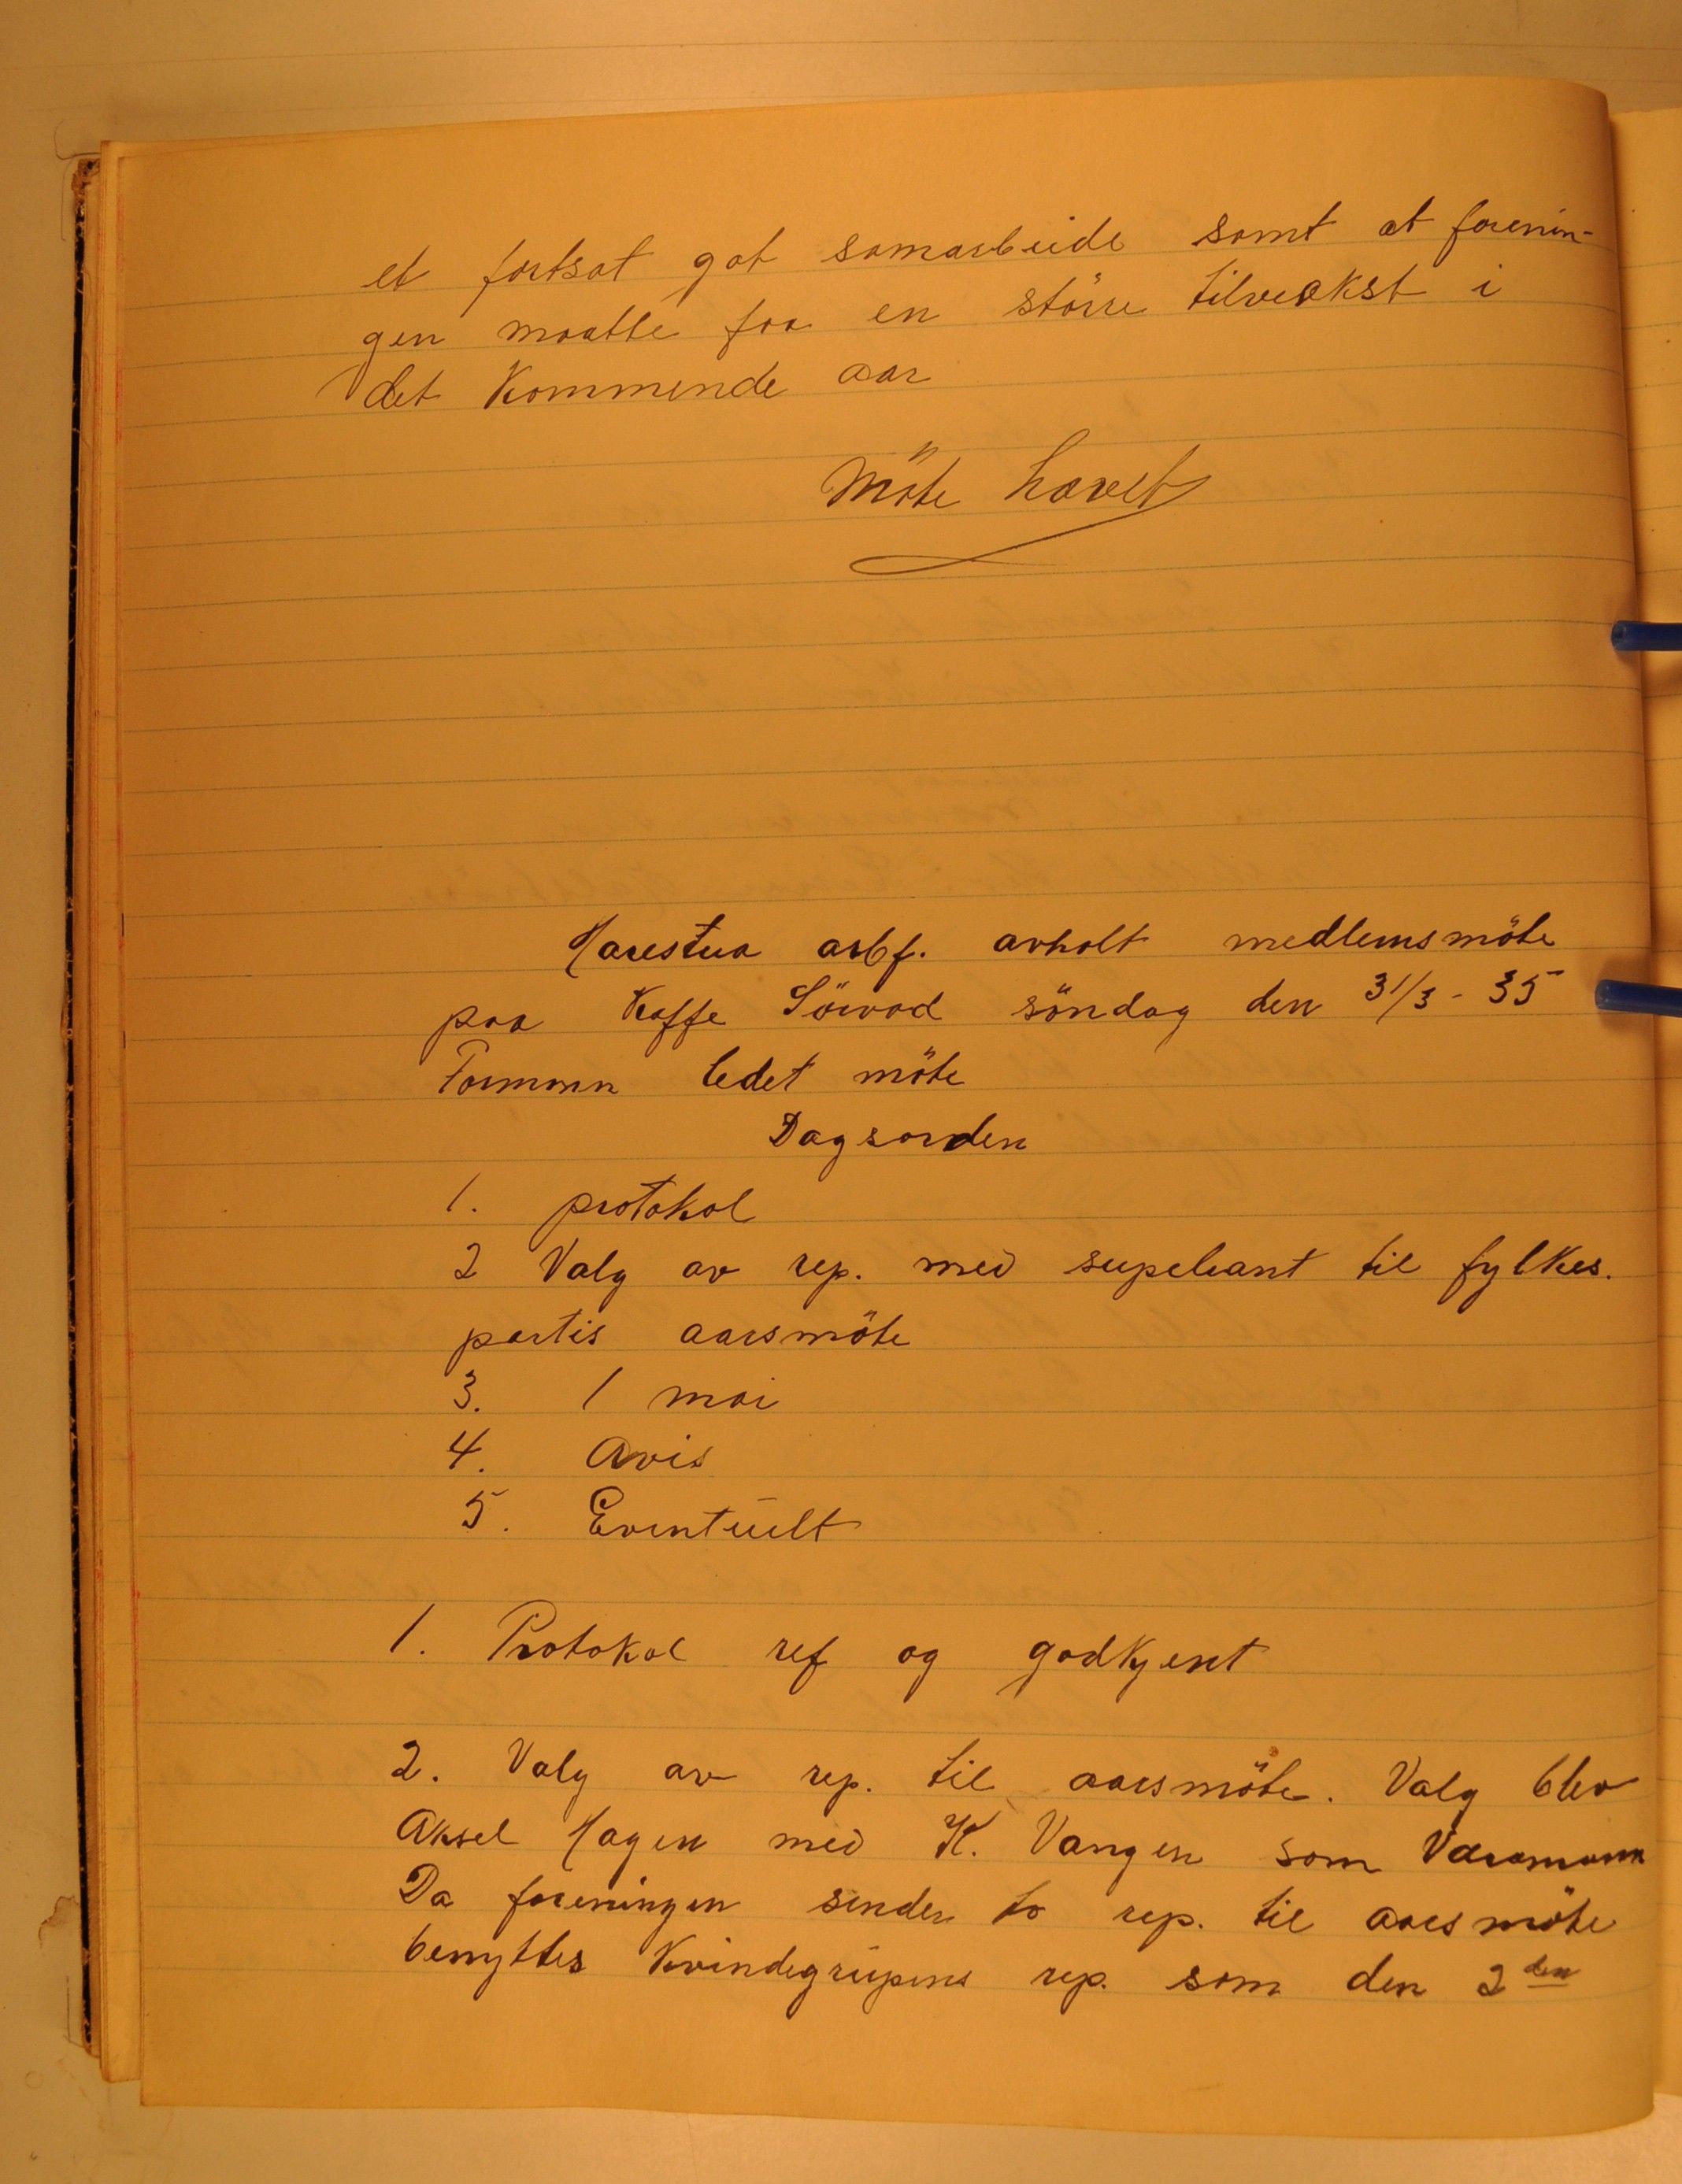 et fortsat got samarbeide samt at forenin-
gen maatte faa en større tilvekst i
det kommende aar
Möte hævet
Harestua arbf. avholt medlemsmöte
paa Kaffe Sörvad söndag den 31/3 - 35
Formnn ledet möte
Dagsorden
1. protokol
2 Valg av rep. med supeleant til fylkes.
partis aarsmöte
3. 1 mai
4. Avis
5. Eventuelt
1. Protokol ref og godkjent
2. Valg av rep. til aarsmöte. Valg blev
Aksel Hagen med K. Vangen som Varamann
Da foreningen sender to rep. til aarsmöte
benyttes Kvindegrupens rep. som den 2den